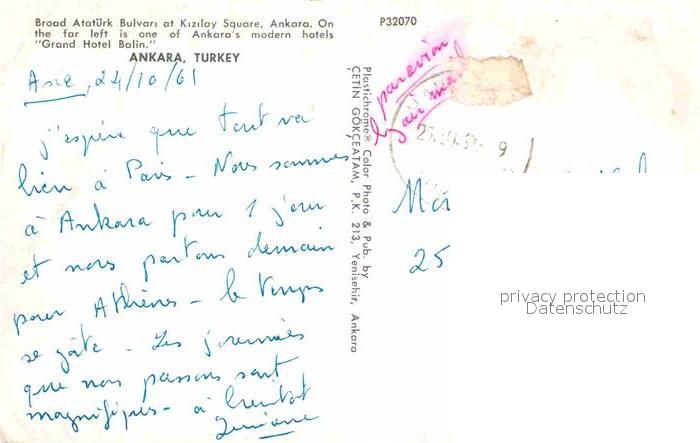 Broad Atatürk Bulvarı at Kızılay Square, Ankara. On
the far left is one of Ankara's modern hotels
"Grand Hotel Balin."
ANKARA, TURKEY
24/10/61
j'espère que tout va
bien à Paris - Nous sommes
à Ankara pour 1 jour
et nous partons demain
pour Athènes - le temps
se gâte. Les journées
que nous passons sont
magnifiques - à bientôt
Plastichrome® Color Photo & Pub. by
ÇETİN GÖKÇEATAM, P.K. 213, Yenişehir, Ankara
P32070
par avion
air mail
25
privacy protection
Datenschutz